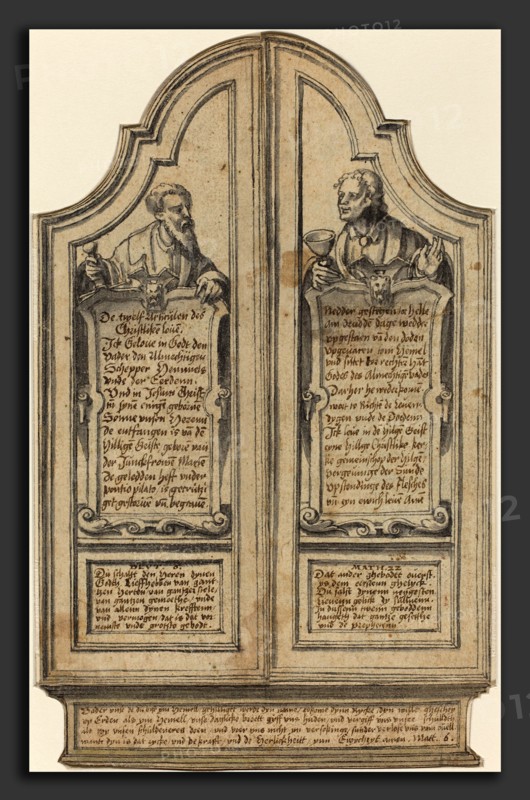 De twelf Articulen des
Christliken loue.
Ick Gelove in Godt den
Vader den Almechtigen
Schepper Hemmels
unde der Eerdenn.
Vnd in Jesum Christ
Sone unsen Heren
De entfangen is va de
Hilligen Geiste gebore van
der Junckfrowen Marie
De geledden heft under
pontio pilato, is gecrutzi
get gestorve un begrave.
Nedder gestegen to Helle
am drudde dage wedder
upgestaen va den doden
upgevaren tom Hemel
und sittet tor rechter Hat
Godes des Almechtige vader
Darher he wederkome
wert to Richte de leven
dygen unde de Doden
Ick love in de hilge Geist
eyne hillige Christlike ker
ke gemeinschop der hilge
vergevinge der Sunde
Upstendinge des Flesches
un eyn ewich leve Ame
DEVT 6.
Du schalt den Heren dynen
Godt Lieffhebben van gantz
tzen Herten van gantzer sele
van gantzen gemoethe unde
van allenn dynen krefftenn
und vermogen dat is dat vor
nemste unde groste gebodt.
MATH. 22
Dat ander
Du salst dynenn negesten
In dussenn tween gebodenn
hangeth dat gantze gesettze
und de propheten
Vader unse de du bist ym Hemell gehilliget werde dyn name, tokome dyn Rycke, dyn wille geschey
up Erden als ym Hemell unse dagelicke broth gyff uns huden, und vorgiff uns unse schulden
als wy unsen schuldeneren doen und vore uns nicht yn versokinge sunder verlose uns van ovell
wente dyn is dat ryche und de krafft und de Herlickheit yun Ewicheyt amen. Matt. 6.